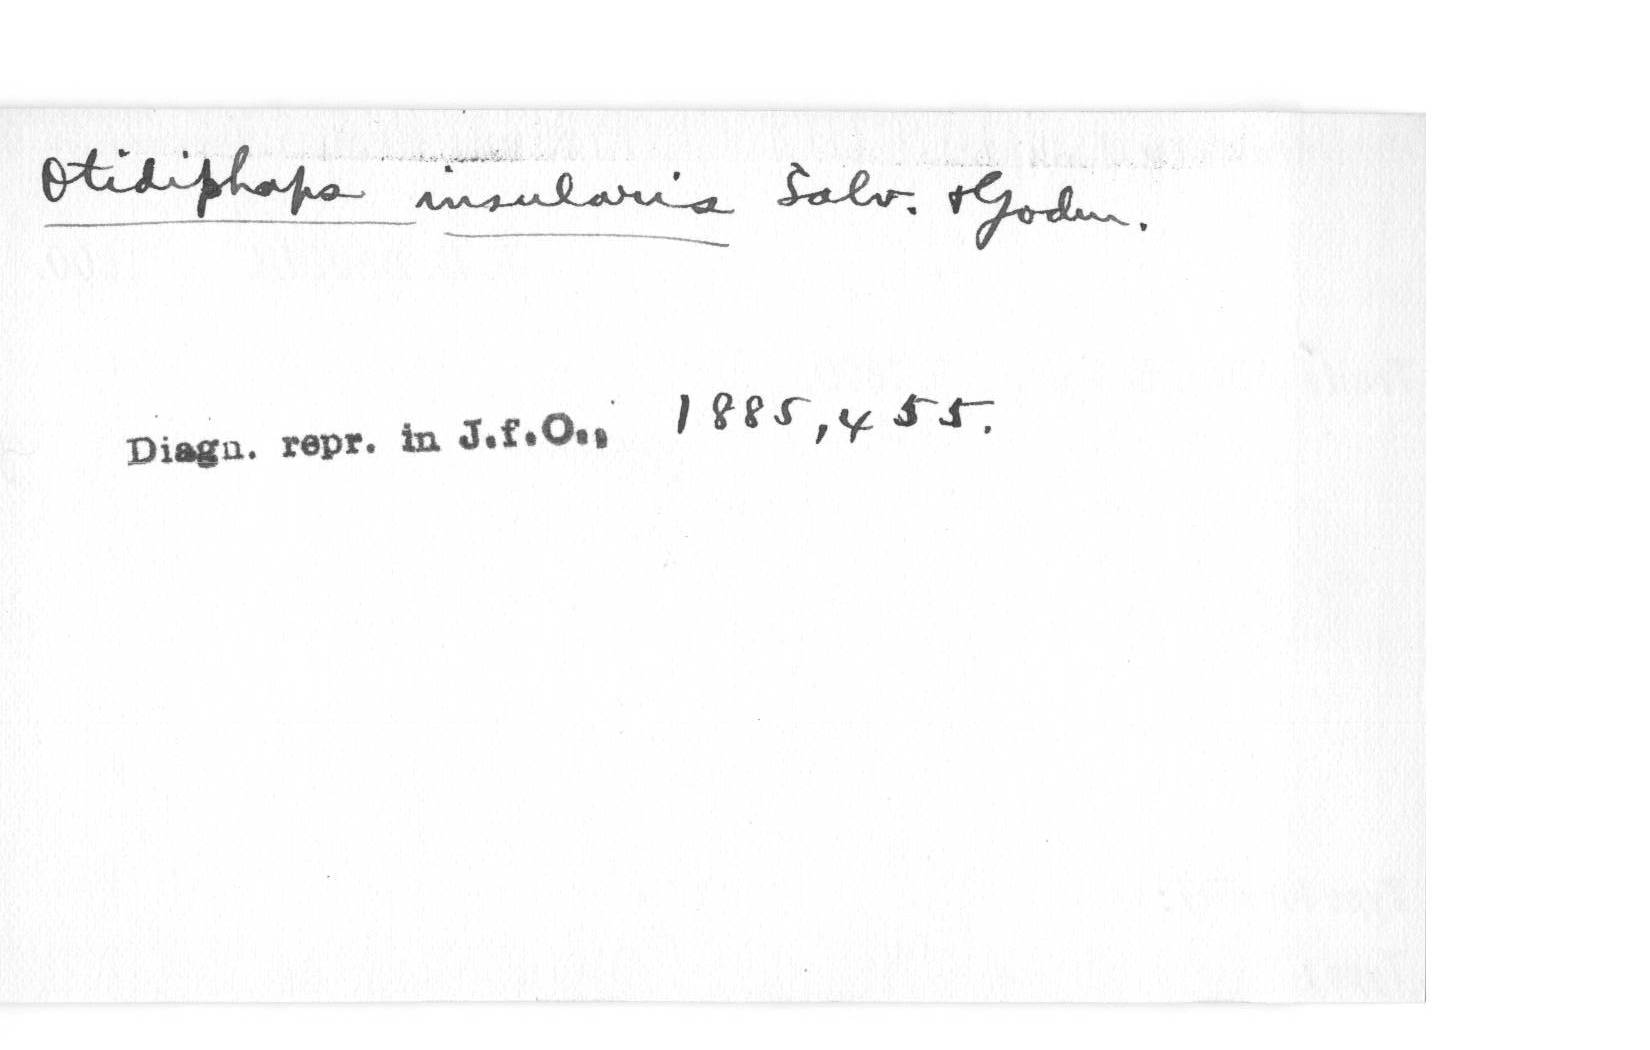 Otidiphaps insularis Salv. & Godm.
Diagn. repr. in J.f.O., 1885, 455.